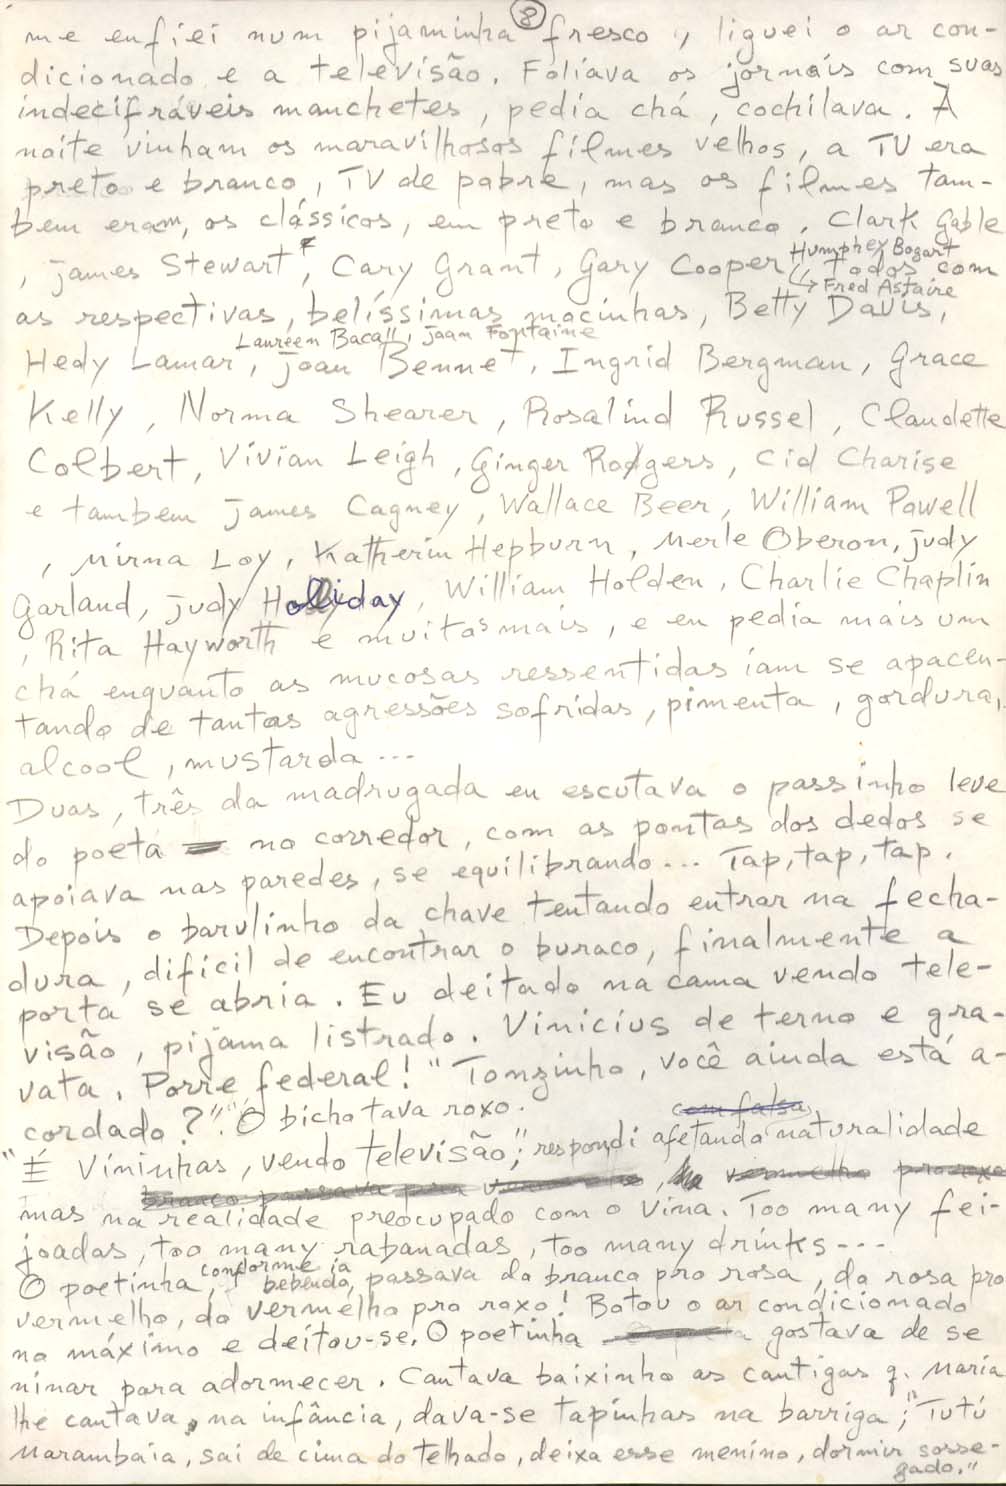 8
me enfiei num pijaminha fresco, liguei o ar con-
dicionado e a televisão. Foliava os jornais com suas
indecifráveis manchetes, pedia chá, cochilava. À
noite vinham os maravilhosos filmes velhos, a TV era
preto e branco, TV de pobre, mas os filmes tam-
bem eram, os clássicos, em preto e branco. Clark Gable
, James Stewart, Cary Grant, Gary Cooper Todos com
Humphey Bogart
Fred Astaire
as respectivas, belíssimas mocinhas, Betty Davis,
Laureen Bacall, Joan Fontaine
Hedy Lamar, Joan Bennet, Ingrid Bergman, Grace
Kelly, Norma Shearer, Rosalind Russel, Claudette
Colbert, Vivian Leigh, Ginger Rogers, Cid Charise
e tambem James Cagney, Wallace Beer, William Powell
, Mirna Loy, Katherin Hepburn, Merle Oberon, Judy
Garland, Judy Holliday, William Holden, Charlie Chaplin
, Rita Hayworth e muitos mais, e eu pedia mais um
chá enquanto as mucosas ressentidas iam se apacen-
tando de tantas agressões sofridas, pimenta, gordura,
alcool, mustarda ...
Duas, três da madrugada eu escutava o passinho leve
do poeta no corredor, com as pontas dos dedos se
apoiava nas paredes, se equilibrando... Tap, tap, tap.
Depois o barulinho da chave tentando entrar na fecha-
dura, difícil de encontrar o buraco, finalmente a
porta se abria. Eu deitado na cama vendo tele-
visão, pijama listrado. Vinicius de terno e gra-
vata. Porre federal! "Tomzinho, você ainda está a-
cordado?" O bicho tava roxo.
com falsa
"É Vininhas, vendo televisão", respondi afetando naturalidade
branco passava para vermelho, vermelho pro roxo
mas na realidade preocupado com o Vina. Too many fei-
joadas, too many rabanadas, too many drinks---
conforme ia
O poetinha, bebendo, passava do branco pro rosa, do rosa pro
vermelho, do vermelho pro roxo! Botou o ar condicionado
no máximo e deitou-se. O poetinha gostava de se
ninar para adormecer. Cantava baixinho as cantigas q. Maria
lhe cantava, na infância, dava-se tapinhas na barriga; "Tutú
Marambaia, sai de cima do telhado, deixa esse menino, dormir sosse-
gado."